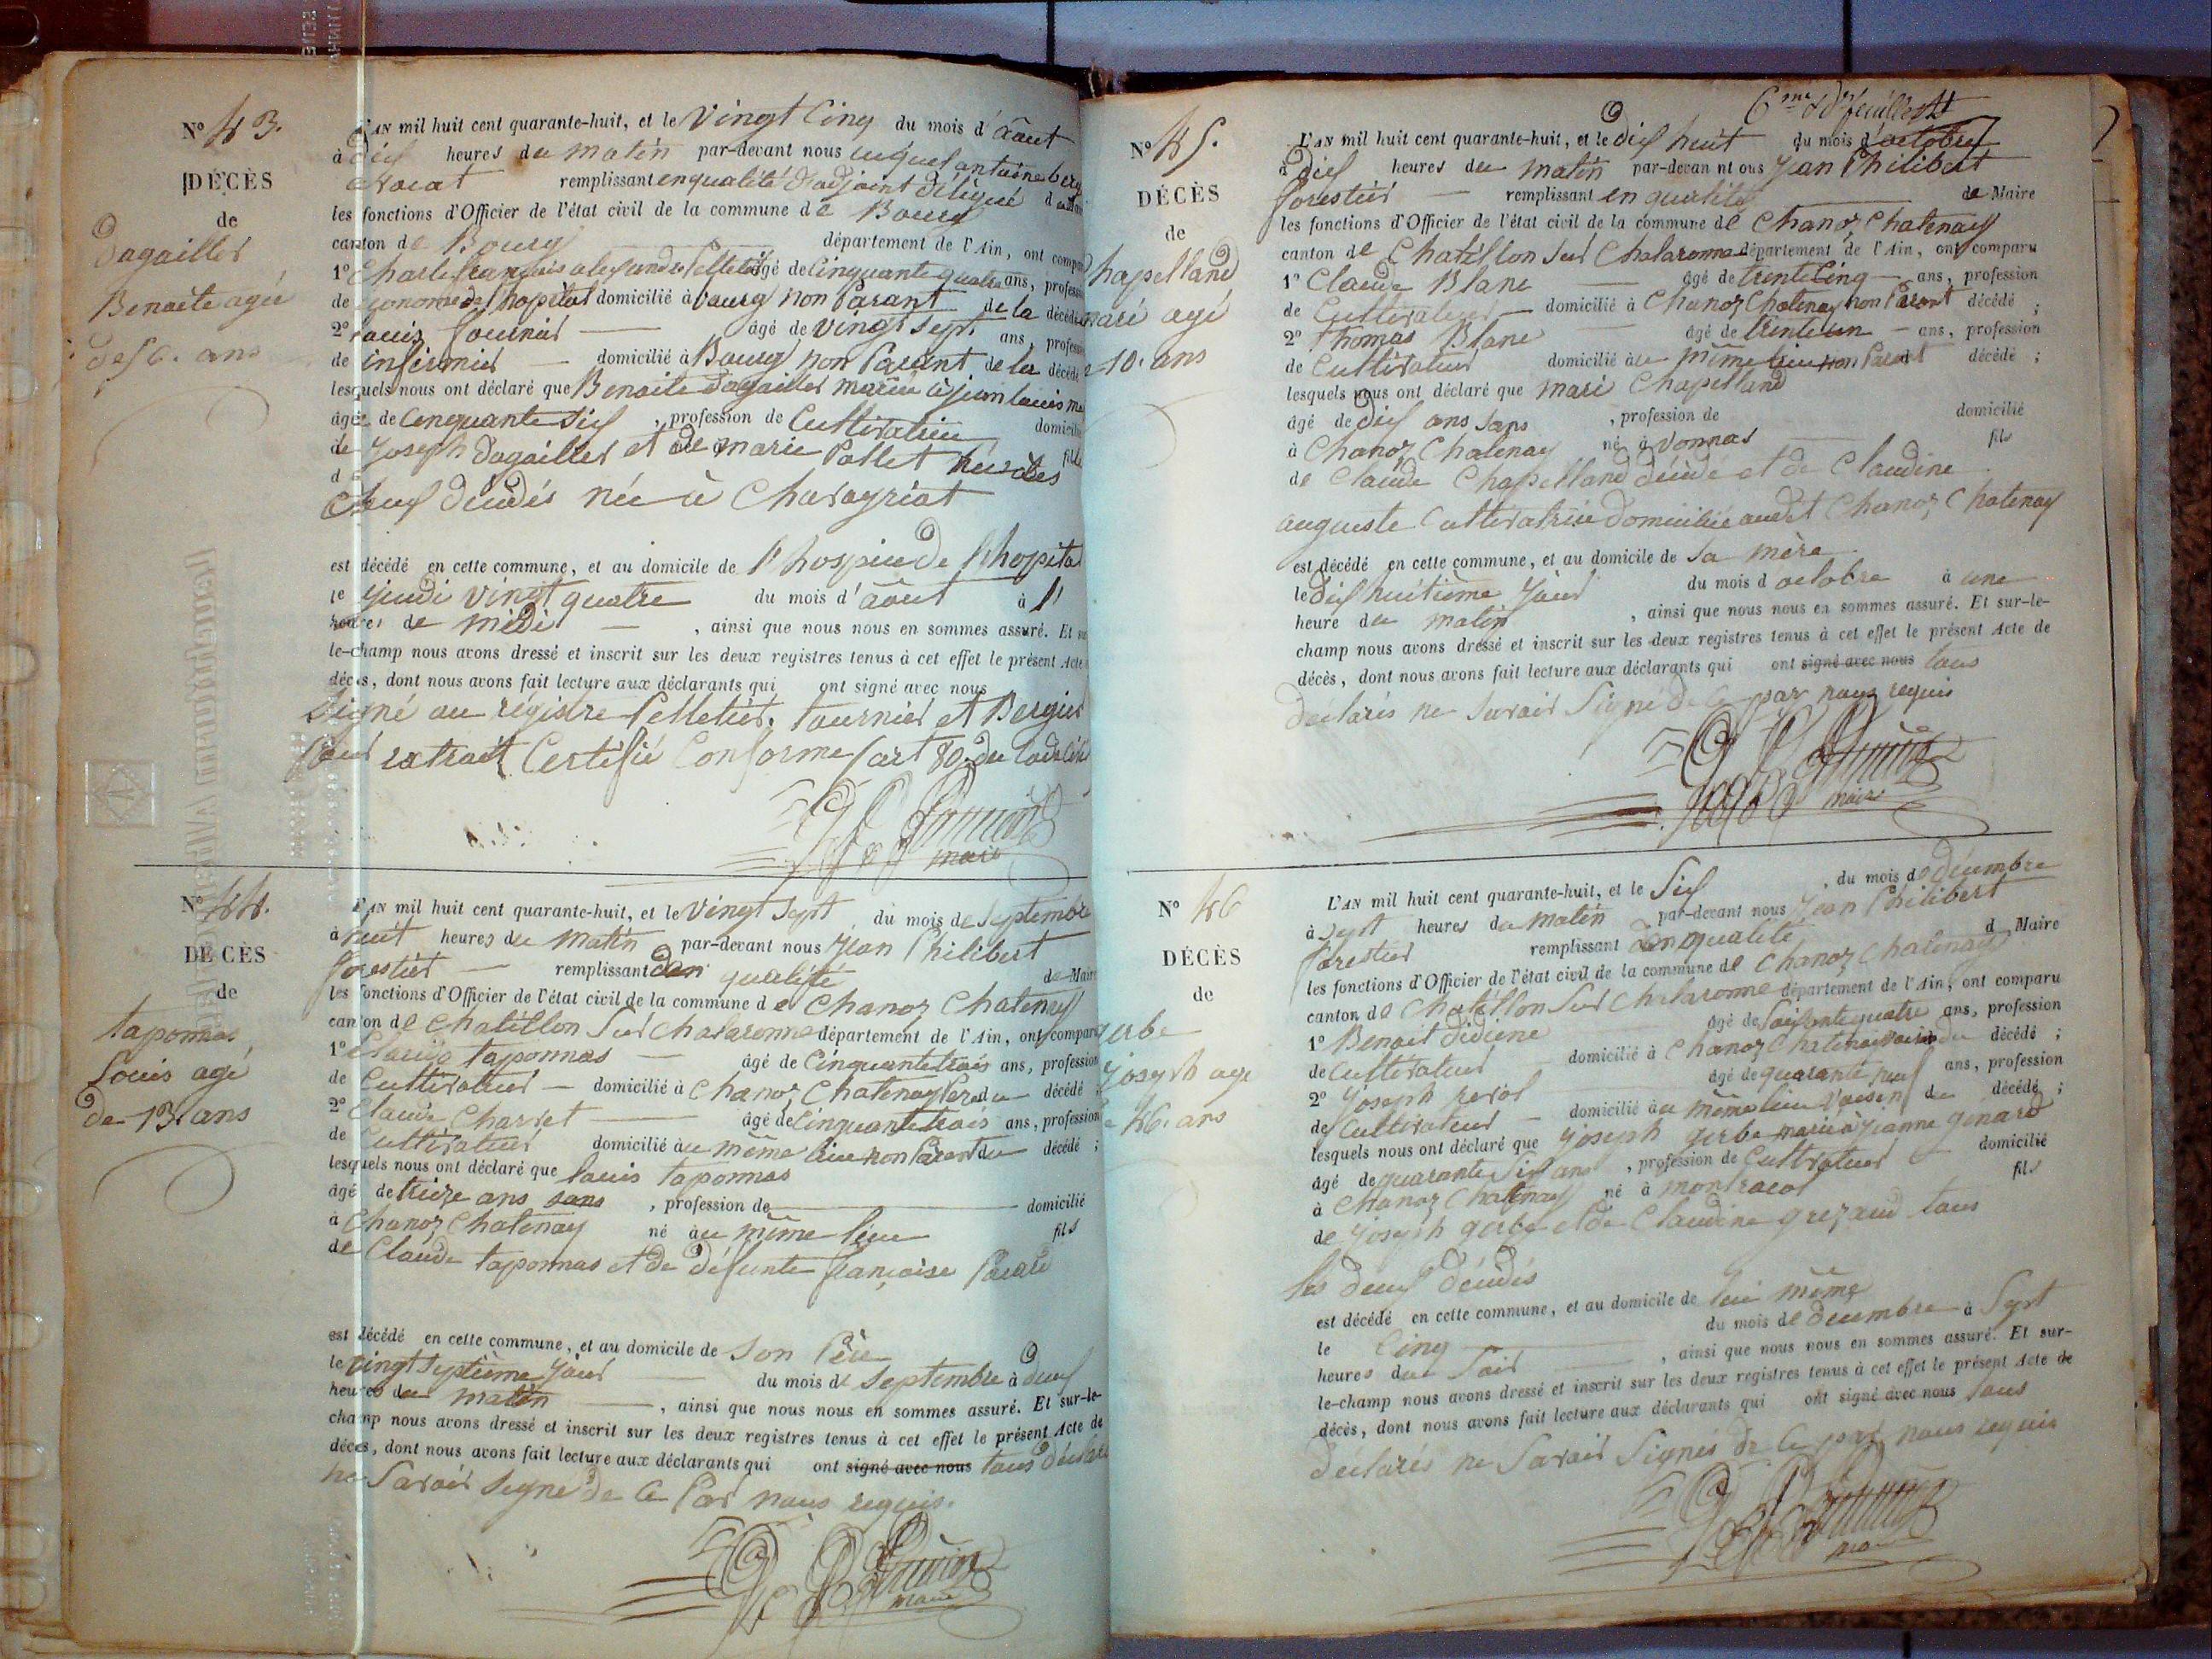 N° 43.
DÉCÈS
de
Dagailler
Benoite agée
de 56. ans
L'AN mil huit cent quarante-huit, et le Vingt Cinq du mois d'août
à dix heures du matin par-devant nous
avocat remplissant en qualité d'adjoint délégué
les fonctions d'Officier de l'état civil de la commune de Bourg
canton de Bourg département de l'Ain, ont comparu
1° Charle françois alexandre Pelletier âgé de Cinquante quatre ans, profession
de économe de l'hopital domicilié à bourg non Parant de la décédée
2° Louis Tournier âgé de Vingt Sept ans, profession
de infirmier domicilié à Bourg non Parant de la décédée
lesquels nous ont déclaré que Benoite Dagailler mariée à jean louis
âgée de Cinquante Six , profession de Cultivatrice domicilié
de Joseph Dagailler et de marie Pallet fille
d
deux décédés née à Chaveyriat
est décédé en cette commune, et au domicile de l'hospice de l'hopital
le jeudi vingt quatre du mois d'août à l'
heures de midi , ainsi que nous nous en sommes assuré. Et sur
le-champ nous avons dressé et inscrit sur les deux registres tenus à cet effet le présent Acte
décès, dont nous avons fait lecture aux déclarants qui ont signé avec nous
Signé au régistre Pelletier. tournier et Bergier
Pour extrait Certifié Conforme (art 80. du Code Civil
maire
N° 44.
DÉCÈS
de
taponnas
Louis agé
de 13 ans
L'AN mil huit cent quarante-huit, et le Vingt Sept du mois de Septembre
à huit heures du Matin par-devant nous Jean Philibert
forestier remplissant en qualité de Maire
les fonctions d'Officier de l'état civil de la commune de Chanoz Chatenay
canton de Chatillon Sur Chalaronne département de l'Ain, ont comparu
1° Claude taponnas âgé de Cinquante trois ans, profession
de Cultivateur domicilié à Chanoz Chatenay Pere du décédé ;
2° Claude Charvet âgé de Cinquante trois ans, profession
de Cultivateur domicilié au même lieu non Parant du décédé ;
lesquels nous ont déclaré que Louis taponnas
âgé de treize ans sans , profession de domicilié
à Chanoz Chatenay né au même lieu fils
de Claude taponnas et de défunte françoise
est décédé en cette commune, et au domicile de Son Père
le vingt Septième Jour du mois de Septembre à deux
heures du matin , ainsi que nous nous en sommes assuré. Et sur-le-
champ nous avons dressé et inscrit sur les deux registres tenus à cet effet le présent Acte de
décès, dont nous avons fait lecture aux déclarants qui ont signé avec nous tous déclaré
ne Savoir Signé de Ce Par nous requis.
maire
6me & feuillet
N° 45.
DÉCÈS
de
Chapelland
mari agé
de 10. ans
L'AN mil huit cent quarante-huit, et le dix huit du mois d'octobre
à dix heures du matin par-devant nous Jean Philibert
forestier remplissant en qualité de Maire
les fonctions d'Officier de l'état civil de la commune de Chanoz Chatenay
canton de Chatillon Sur Chalaronne département de l'Ain, ont comparu
1° Claude Blanc âgé de trente Cinq ans, profession
de Cultivateur domicilié à Chanoz Chatenay non Parant décédé ;
2° Thomas Blanc âgé de trente un ans, profession
de Cultivateur domicilié au même lieu non Parant décédé ;
lesquels nous ont déclaré que mari Chapelland
âgé de dix ans Sans , profession de domicilié
à Chanoz Chatenay né à Vonnas fils
de Claude Chapelland décédé et de Claudine
auguste Cultivatrice domiciliée audit Chanoz Chatenay
est décédé en cette commune, et au domicile de Sa mère
le dix huitième Jour du mois d octobre à une
heure du matin , ainsi que nous nous en sommes assuré. Et sur-le-
champ nous avons dressé et inscrit sur les deux registres tenus à cet effet le présent Acte de
décès, dont nous avons fait lecture aux déclarants qui ont signé avec nous tous
déclarés ne Savoir Signé de Ce par nous requis
maire
N° 46
DÉCÈS
de
gerbe
joseph age
de 46. ans
L'AN mil huit cent quarante-huit, et le Six du mois de décembre
à Sept heures du Matin par-devant nous Jean Philibert
forestier remplissant en qualité d Maire
les fonctions d'Officier de l'état civil de la commune de Chanoz Chatenay
canton de Chatillon Sur Chalaronne département de l'Ain, ont comparu
1° Benoit âgé de Soixante quatre ans, profession
de Cultivateur domicilié à Chanoz Chatenay voisin du décédé ;
2° Joseph âgé de quarante neuf ans, profession
de Cultivateur domicilié au même lieu voisin du décédé ;
lesquels nous ont déclaré que joseph gerbe marié à jeanne génard
âgé de quarante Six ans , profession de Cultivateur domicilié
à Chanoz Chatenay né à montracol fils
de joseph gerbe et de Claudine grezaud tous
les deux décédés
est décédé en cette commune, et au domicile de lui même
le Cinq du mois de décembre à Sept
heures du Soir , ainsi que nous nous en sommes assuré. Et sur-
le-champ nous avons dressé et inscrit sur les deux registres tenus à cet effet le présent Acte de
décès, dont nous avons fait lecture aux déclarants qui ont signé avec nous tous
déclarés ne Savoir Signés de Ce par nous requis
maire